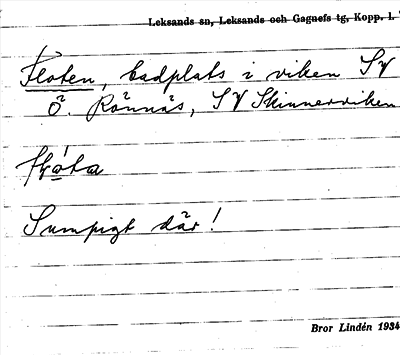 Leksands sn, Leksands och Gagnefs tg, Kopp. l.
Floten, badplats i viken SV
Ö. Rönnäs, SV Skinnarviken
Sumpigt där!
Bror Lindén 1934